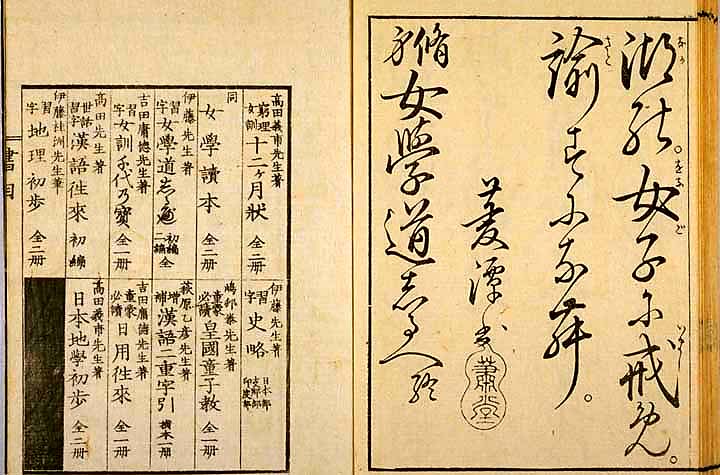 女子尓戒免。
諭
菱潭書
女學道志るべ終
高田義甫先生著
窮理女訓 十二ヶ月状 全二冊
同
女學讀本 全二冊
伊藤先生著
習字 女學道志る遍 初編二編 全
吉田庸徳先生著
習字 女訓千代乃寳 全二冊
高田先生著
世話習字 漢語徃來 初編
伊藤桂洲先生筆
習字 地理初歩 全二冊
伊藤先生著
習字 史略 日本部 支那部 印度部
嶋邨泰先生著
童蒙必讀 皇國童子教 全一冊
萩原乙彦先生著
増補 漢語二重字引 横本一冊
吉田庸徳先生著
童蒙必讀 日用徃來 全一冊
高田義甫先生著
日本地學初歩 全二冊
書目